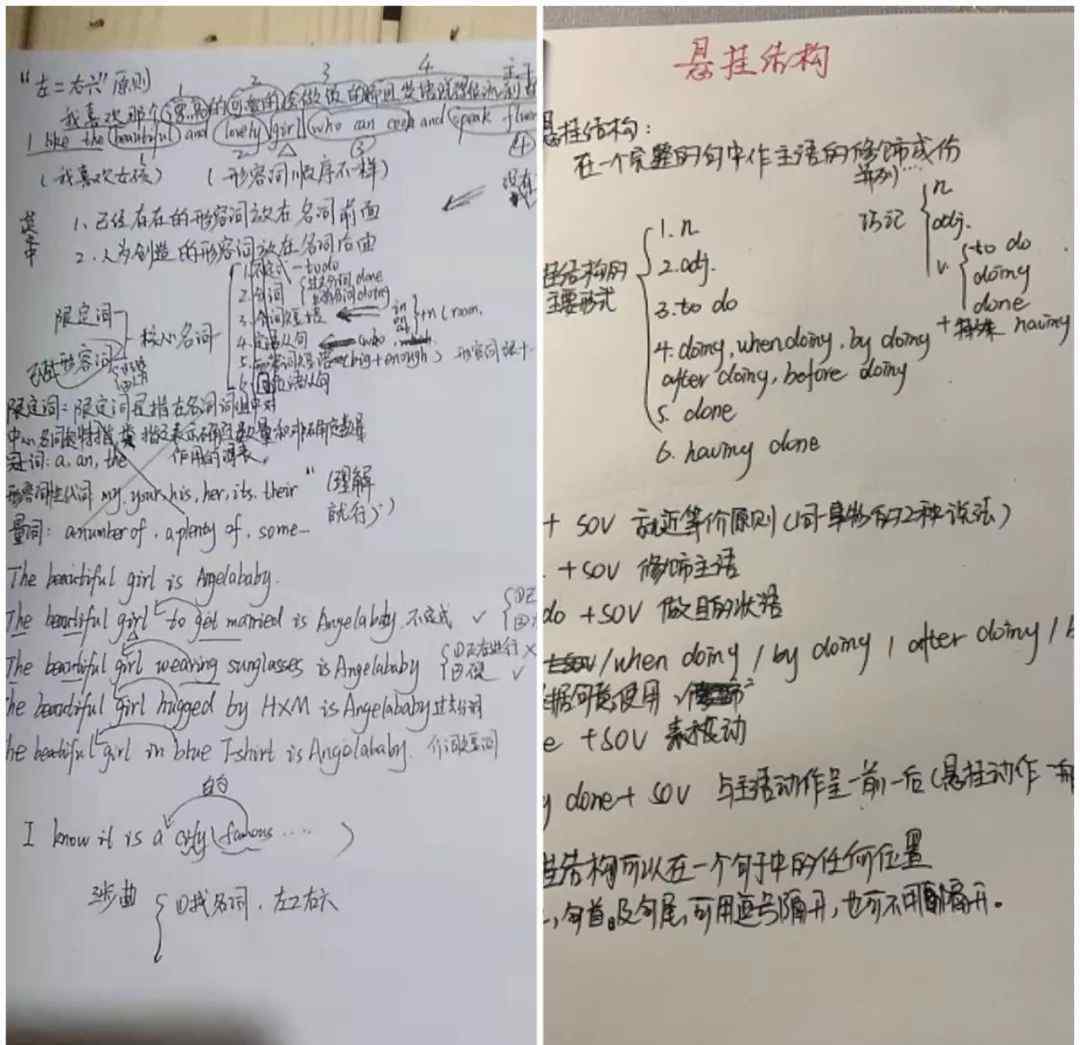 "左二右六"原则
1 2 3 4
我喜欢那个漂亮的可爱的会做饭的
I like the (beautiful) and (lovely) girl (who can cook and (speak
(我喜欢女孩) (形容词顺序不一样)
没有
1、已经存在的形容词放在名词前面
2、人为创造的形容词放在名词后面
1. 不定式—to do
2. 分词 过去分词 done
现在分词 doing
3. 介词短语 in on +n (room.
限定词
核心名词
4. 定语从句 who
形容词
5. 形容词短语 (big+enough)
6. 同位语从句
限定词:限定词是指在名词词组中对
中心名词起特指、类指以及表示确定数量和非确定数量
冠词: a, an, the 作用的词表。
形容词性代词 my, your, his, her, its, their " (理解
就行)
量词: a number of, a plenty of, some—
The beautiful girl is Angelababy.
The beautiful girl to get married is Angelababy. 不定式 ✓
The beautiful girl wearing sunglasses is Angelababy ①正在进行 ×
②现 ✓
he beautiful girl hugged by HXM is Angelababy 过去分词
he beautiful girl in blue T-shirt is Angelababy. 介词短语
的
I know it is a city (famous ····· )
三步曲 { ①找名词,左2右六
悬挂结构
悬挂结构:
在一个完整的句中作主语的修饰成份
并列…
巧记 { n
adj.
v. { to do
doing
done
+ 特殊 having
挂结构的
主要形式
1. n
2. adj.
3. to do
4. doing, when doing, by doing
after doing, before doing
5. done
6. having done
+ SOV 就近等价原则(同一事物的2种说法)
. +SOV 修饰主语
do +SOV 做目的状语
/when doing / by doing / after doing /
据句意使用
e +SOV 表被动
g done + SOV 与主语动作呈一前一后(悬挂动作
挂结构可以在一个句子中的任何位置
,句首。及句尾,可用逗号隔开,也可不用隔开。